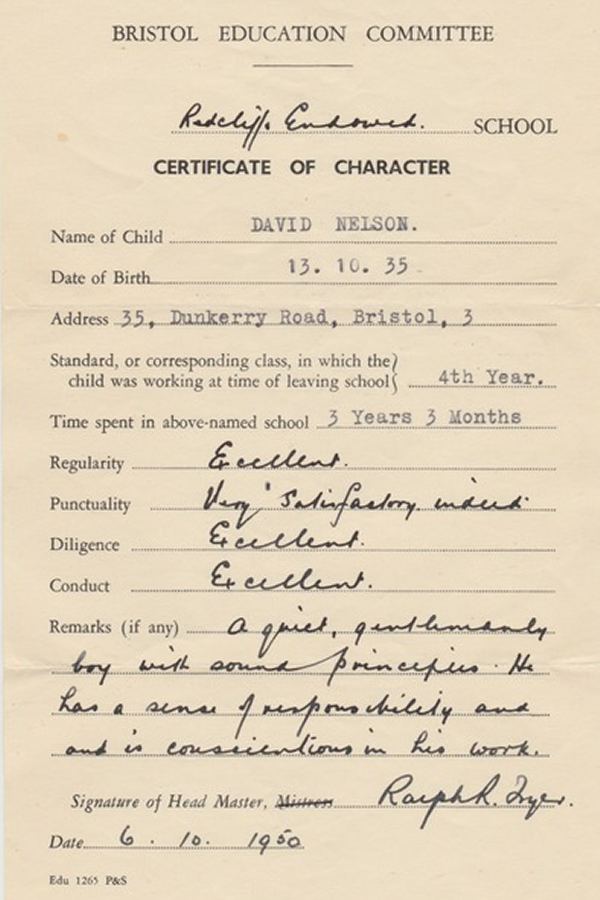 BRISTOL EDUCATION COMMITTEE
Redcliffe Endowed. SCHOOL
CERTIFICATE OF CHARACTER
Name of Child DAVID NELSON.
Date of Birth 13. 10. 35
Address 35, Dunkerry Road, Bristol, 3
Standard, or corresponding class, in which the
child was working at time of leaving school 4th Year.
Time spent in above-named school 3 Years 3 Months
Regularity Excellent.
Punctuality Very Satisfactory indeed
Diligence Excellent.
Conduct Excellent.
Remarks (if any) A quiet, gentlemanly
boy with sound principles. He
has a sense of responsibility and
and is conscientious in his work.
Signature of Head Master, Mistress Ralph R. Fryer.
Date 6. 10. 1950
Edu 1265 P&S